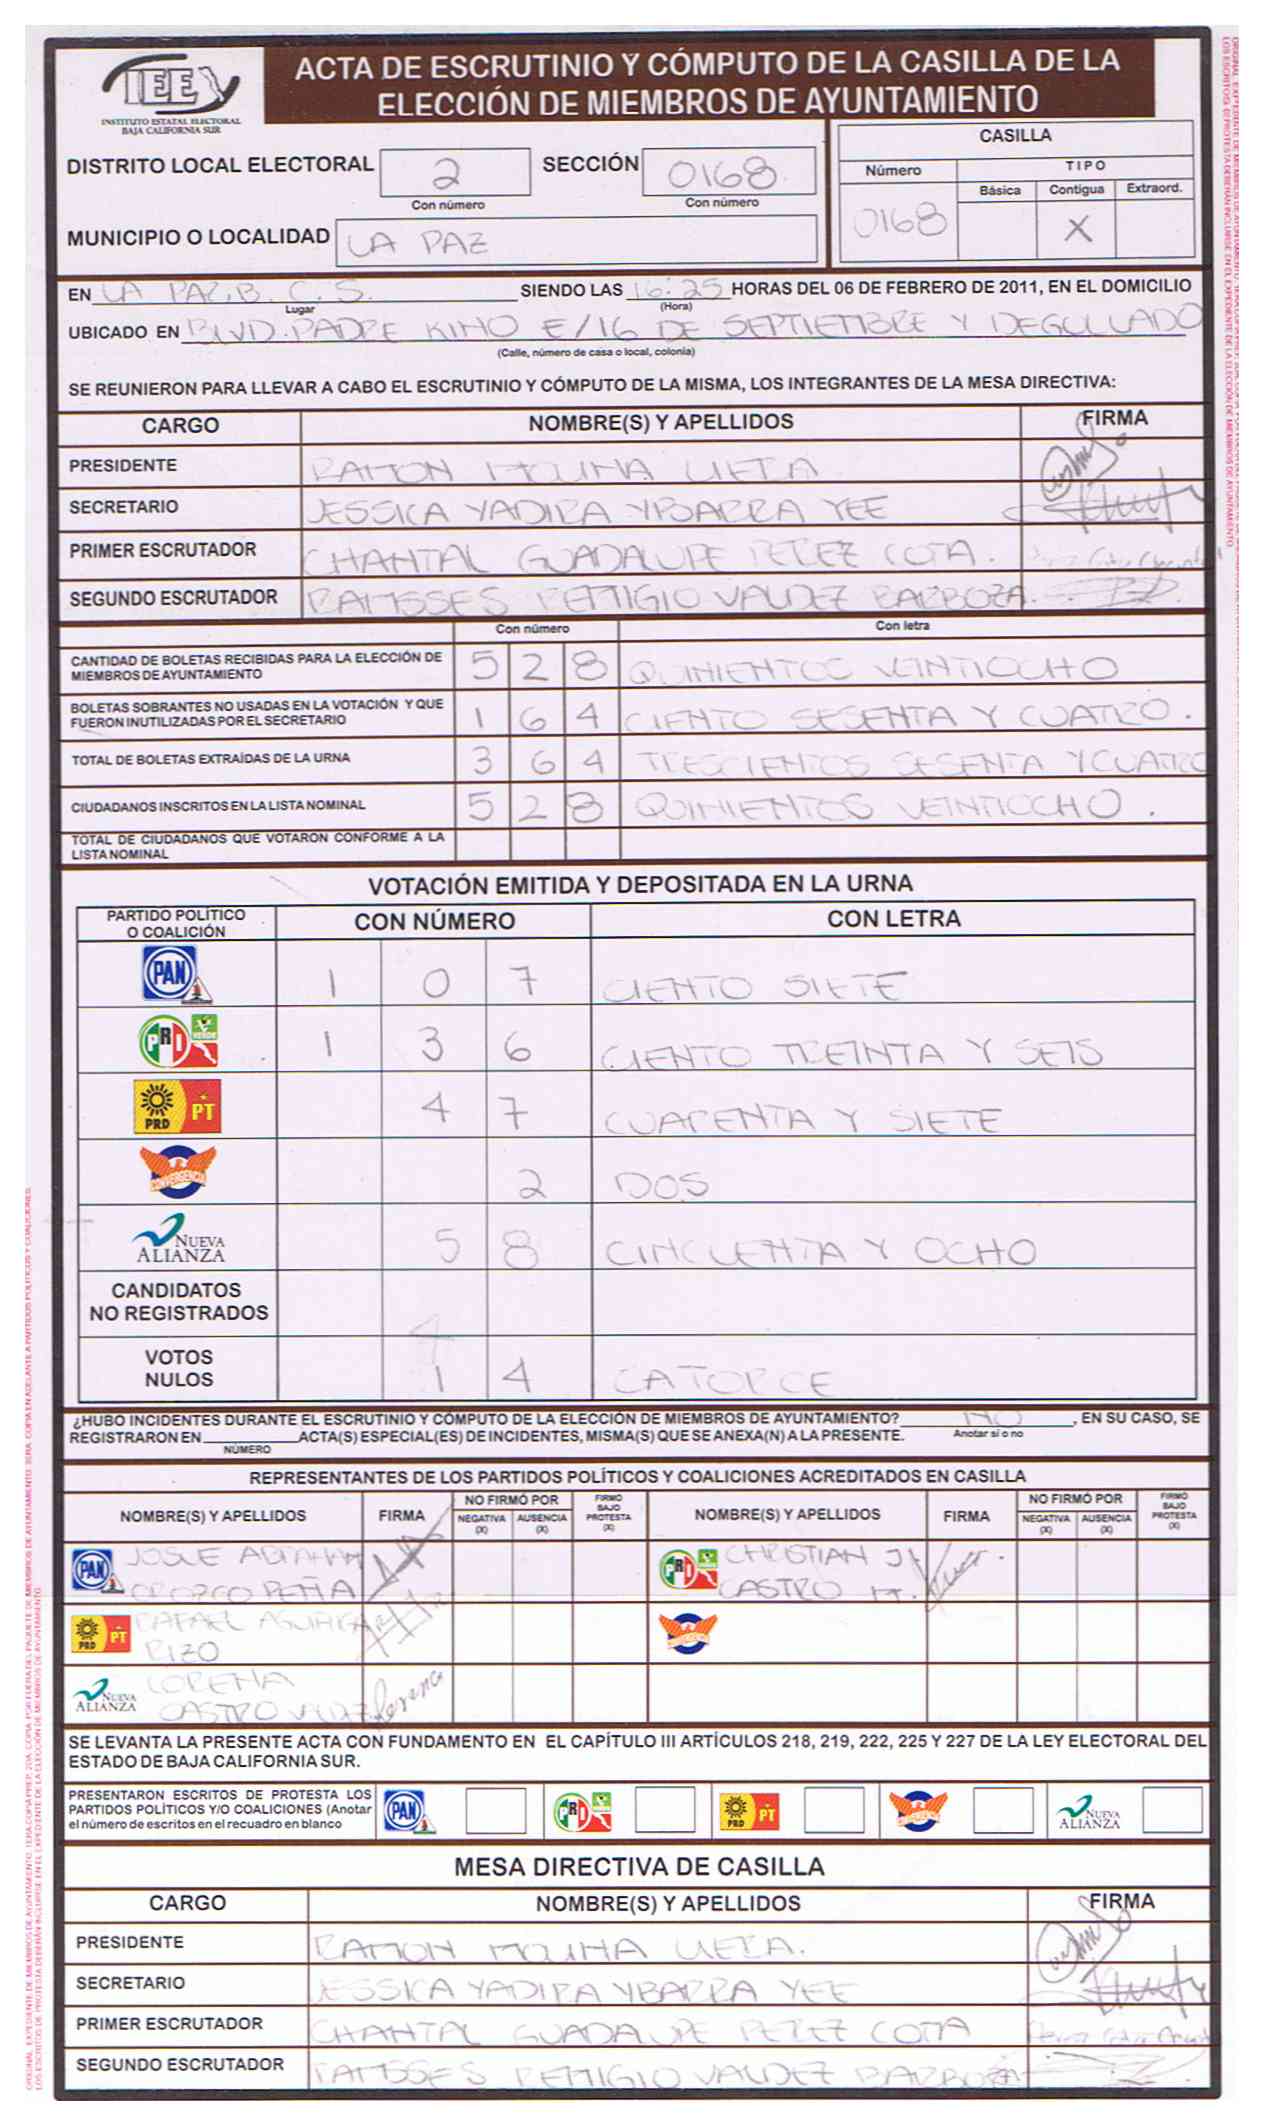 IEE
INSTITUTO ESTATAL ELECTORAL
BAJA CALIFORNIA SUR
ACTA DE ESCRUTINIO Y CÓMPUTO DE LA CASILLA DE LA
ELECCIÓN DE MIEMBROS DE AYUNTAMIENTO
DISTRITO LOCAL ELECTORAL 2 SECCIÓN 0168
Con número Con número
CASILLA
Número TIPO
Básica Contigua Extraord.
0168 X
MUNICIPIO O LOCALIDAD LA PAZ
EN LA PAZ, B. C. S. SIENDO LAS 16:25 HORAS DEL 06 DE FEBRERO DE 2011, EN EL DOMICILIO
Lugar (Hora)
UBICADO EN BLVD. PADRE KINO E/16 DE SEPTIEMBRE Y DEGOLLADO
(Calle, número de casa o local, colonia)
SE REUNIERON PARA LLEVAR A CABO EL ESCRUTINIO Y CÓMPUTO DE LA MISMA, LOS INTEGRANTES DE LA MESA DIRECTIVA:
CARGO NOMBRE(S) Y APELLIDOS FIRMA
PRESIDENTE RAMON MOLINA
SECRETARIO JESSICA YADIRA YBARRA YEE
PRIMER ESCRUTADOR CHANTAL GUADALUPE PEREZ COTA.
SEGUNDO ESCRUTADOR RAMSSES REMIGIO VALDEZ BARBOZA.
Con número Con letra
CANTIDAD DE BOLETAS RECIBIDAS PARA LA ELECCIÓN DE
MIEMBROS DE AYUNTAMIENTO 5 2 8 QUINIENTOS VEINTIOCHO
BOLETAS SOBRANTES NO USADAS EN LA VOTACIÓN Y QUE
FUERON INUTILIZADAS POR EL SECRETARIO 1 6 4 CIENTO SESENTA Y CUATRO.
TOTAL DE BOLETAS EXTRAÍDAS DE LA URNA 3 6 4 TRESCIENTOS SESENTA Y CUATRO
CIUDADANOS INSCRITOS EN LA LISTA NOMINAL 5 2 8 QUINIENTOS VEINTIOCHO.
TOTAL DE CIUDADANOS QUE VOTARON CONFORME A LA
LISTA NOMINAL
VOTACIÓN EMITIDA Y DEPOSITADA EN LA URNA
PARTIDO POLÍTICO
O COALICIÓN CON NÚMERO CON LETRA
PAN 1 0 7 CIENTO SIETE
PRI VERDE 1 3 6 CIENTO TREINTA Y SEIS
PRD PT 4 7 CUARENTA Y SIETE
CONVERGENCIA 2 DOS
NUEVA
ALIANZA 5 8 CINCUENTA Y OCHO
CANDIDATOS
NO REGISTRADOS 4
VOTOS
NULOS 1 4 CATORCE
¿HUBO INCIDENTES DURANTE EL ESCRUTINIO Y CÓMPUTO DE LA ELECCIÓN DE MIEMBROS DE AYUNTAMIENTO? NO, EN SU CASO, SE
REGISTRARON EN ACTA(S) ESPECIAL(ES) DE INCIDENTES, MISMA(S) QUE SE ANEXA(N) A LA PRESENTE. Anotar sí o no
NÚMERO
REPRESENTANTES DE LOS PARTIDOS POLÍTICOS Y COALICIONES ACREDITADOS EN CASILLA
NOMBRE(S) Y APELLIDOS FIRMA NO FIRMÓ POR FIRMO BAJO PROTESTA (X) NOMBRE(S) Y APELLIDOS FIRMA NO FIRMÓ POR FIRMO BAJO PROTESTA (X)
NEGATIVA (X) AUSENCIA (X) NEGATIVA (X) AUSENCIA (X)
PAN JOSUE ABRAHAM PRI CHRISTIAN J.
OROZCO PEÑA CASTRO M.
PRD PT RAFAEL CONVERGENCIA
RIZO
NUEVA ALIANZA LORENA
CASTRO Lorena
SE LEVANTA LA PRESENTE ACTA CON FUNDAMENTO EN EL CAPÍTULO III ARTÍCULOS 218, 219, 222, 225 Y 227 DE LA LEY ELECTORAL DEL
ESTADO DE BAJA CALIFORNIA SUR.
PRESENTARON ESCRITOS DE PROTESTA LOS
PARTIDOS POLÍTICOS Y/O COALICIONES (Anotar
el número de escritos en el recuadro en blanco
PAN PRI PRD PT CONVERGENCIA NUEVA ALIANZA
MESA DIRECTIVA DE CASILLA
CARGO NOMBRE(S) Y APELLIDOS FIRMA
PRESIDENTE RAMON MOLINA
SECRETARIO JESSICA YADIRA YBARRA YEE
PRIMER ESCRUTADOR CHANTAL GUADALUPE PEREZ COTA
SEGUNDO ESCRUTADOR RAMSSES REMIGIO VALDEZ BARBOZA